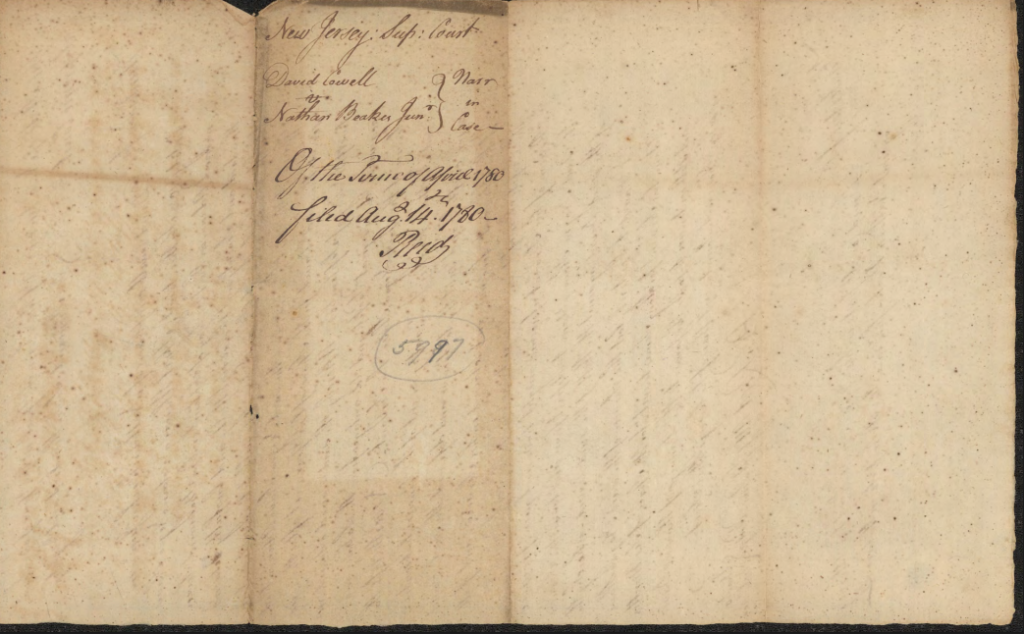 New Jersey: Sup: Court
David Cowell
vs
Nathan Beakes Junr
} Narr
in
Case —
Of the Term of April 1780
filed Augt. 14th. 1780 —
Reed
5997